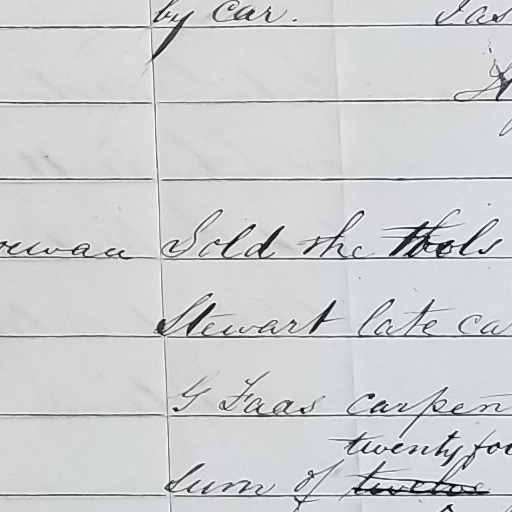 by car. Jas
Sold the tools
Stewart late ca
G Faas carpen
twenty fou
Sum of twelve